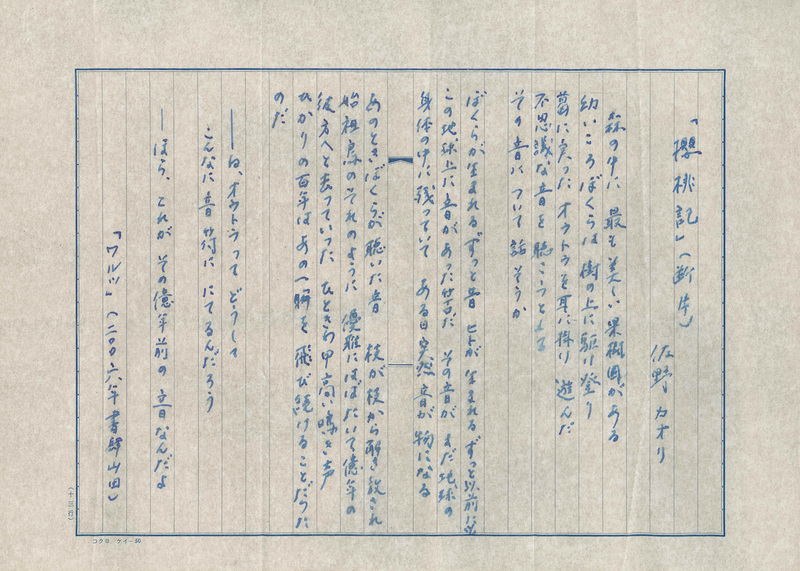 「櫻桃記」(断片)
佐野カオリ
森の中に 最も美しい果樹園がある
幼いころぼくらは 樹の上に駆け登り
葛に実った オウトウを耳に掛け 遊んだ
不思議な音を 聴こうとする
その音について 話そうか
ぼくらが生まれる ずっと昔 ヒトが 生まれる ずっと以前に
この地球上に音があった 昔だ その音が まだ地球の
身体の中に 残っていて ある日突然 音が 物になる
あのとき ぼくらが聴いた音 枝が枝から解き放され
始祖鳥のそれのように 優雅にはばたいて 億年の
彼方へと去っていった ひときわ甲高い鳴き声
ひかりの百年は あの一瞬を 飛び続けることだった
のだ
――ね、オウトウって どうして
こんなに 音符に にてるんだろう
――ほら、これが その億年前の 音なんだよ
「ワルツ」(二〇〇六年 書肆山田)
(十三行)
コクヨ ケイ-80